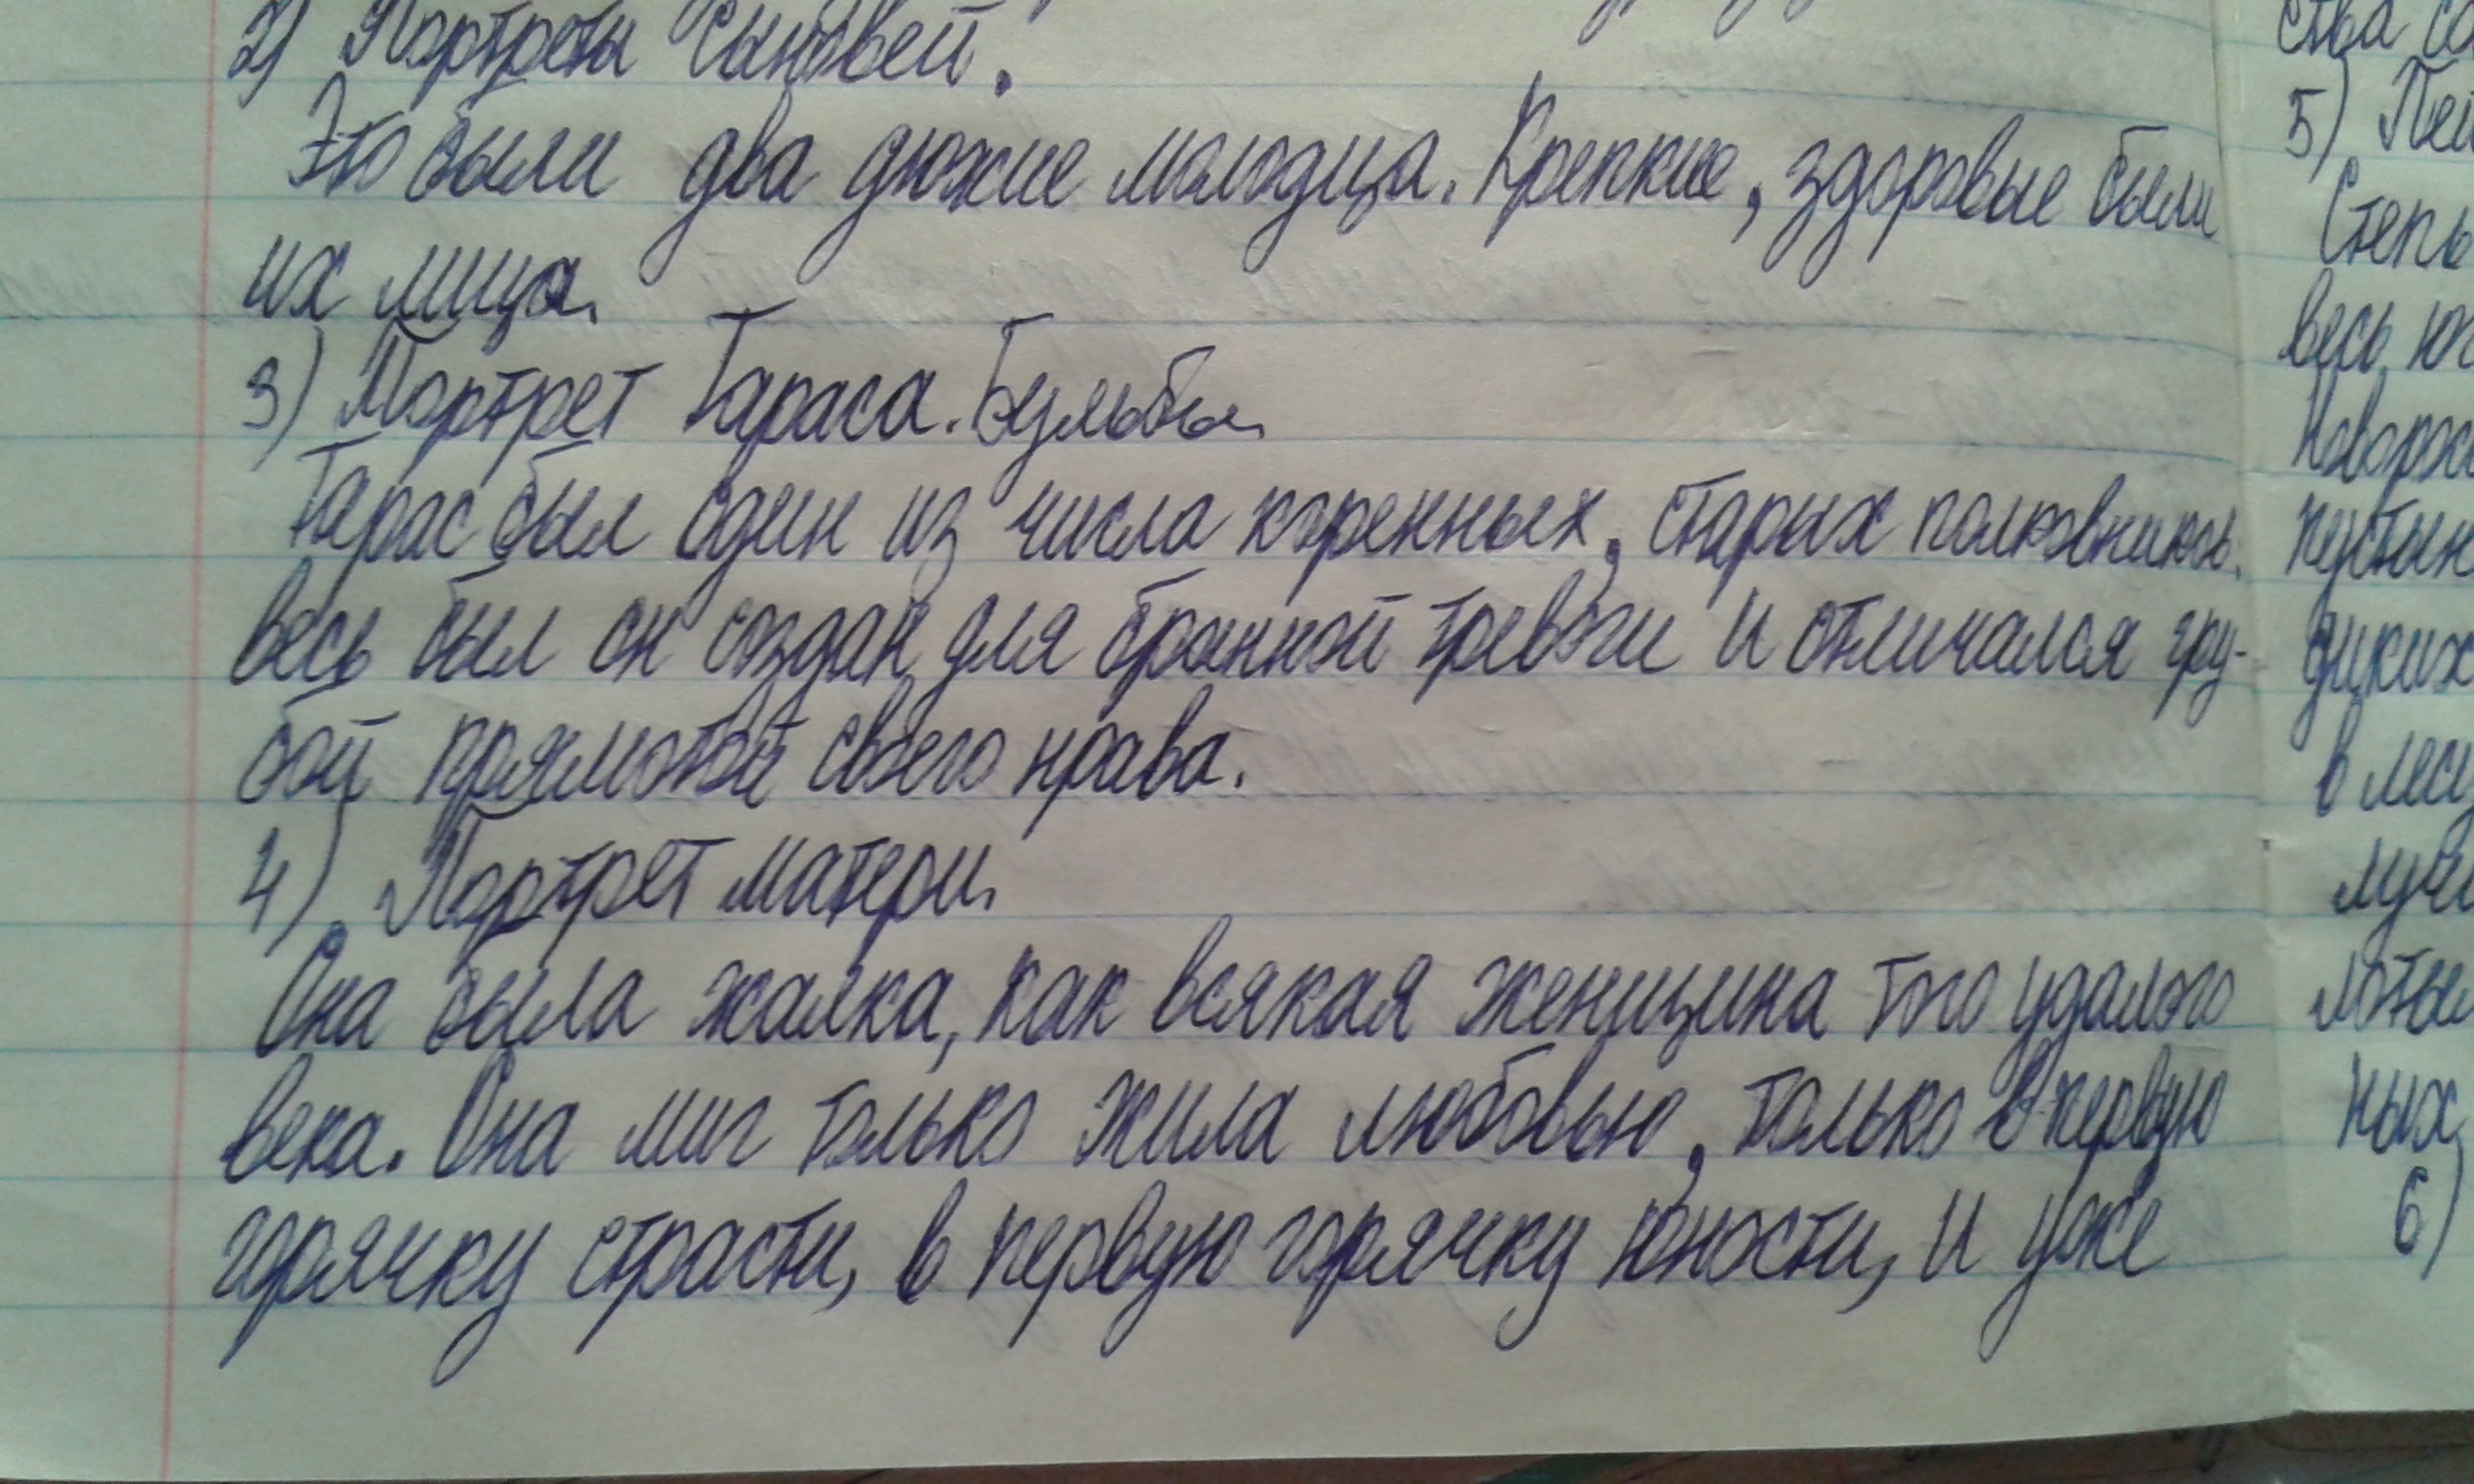 2) Портреты сыновей.
Это были два дюжие молодца. Крепкие, здоровые были
их лица.
3) Портрет Тараса. Бульбы.
Тарас был один из числа коренных, старых полковников.
весь был он создан для бранной тревоги и отличался гру-
бой прямотой своего нрава.
4) Портрет матери.
Она была жалка, как всякая женщина того удалого
века. Она миг только жила любовью, только в первую
горячку страсти, в первую горячку юности, и уже
ства
5) Пей
Степь
весь юг
пустын
диких
в лесу
ных
6)